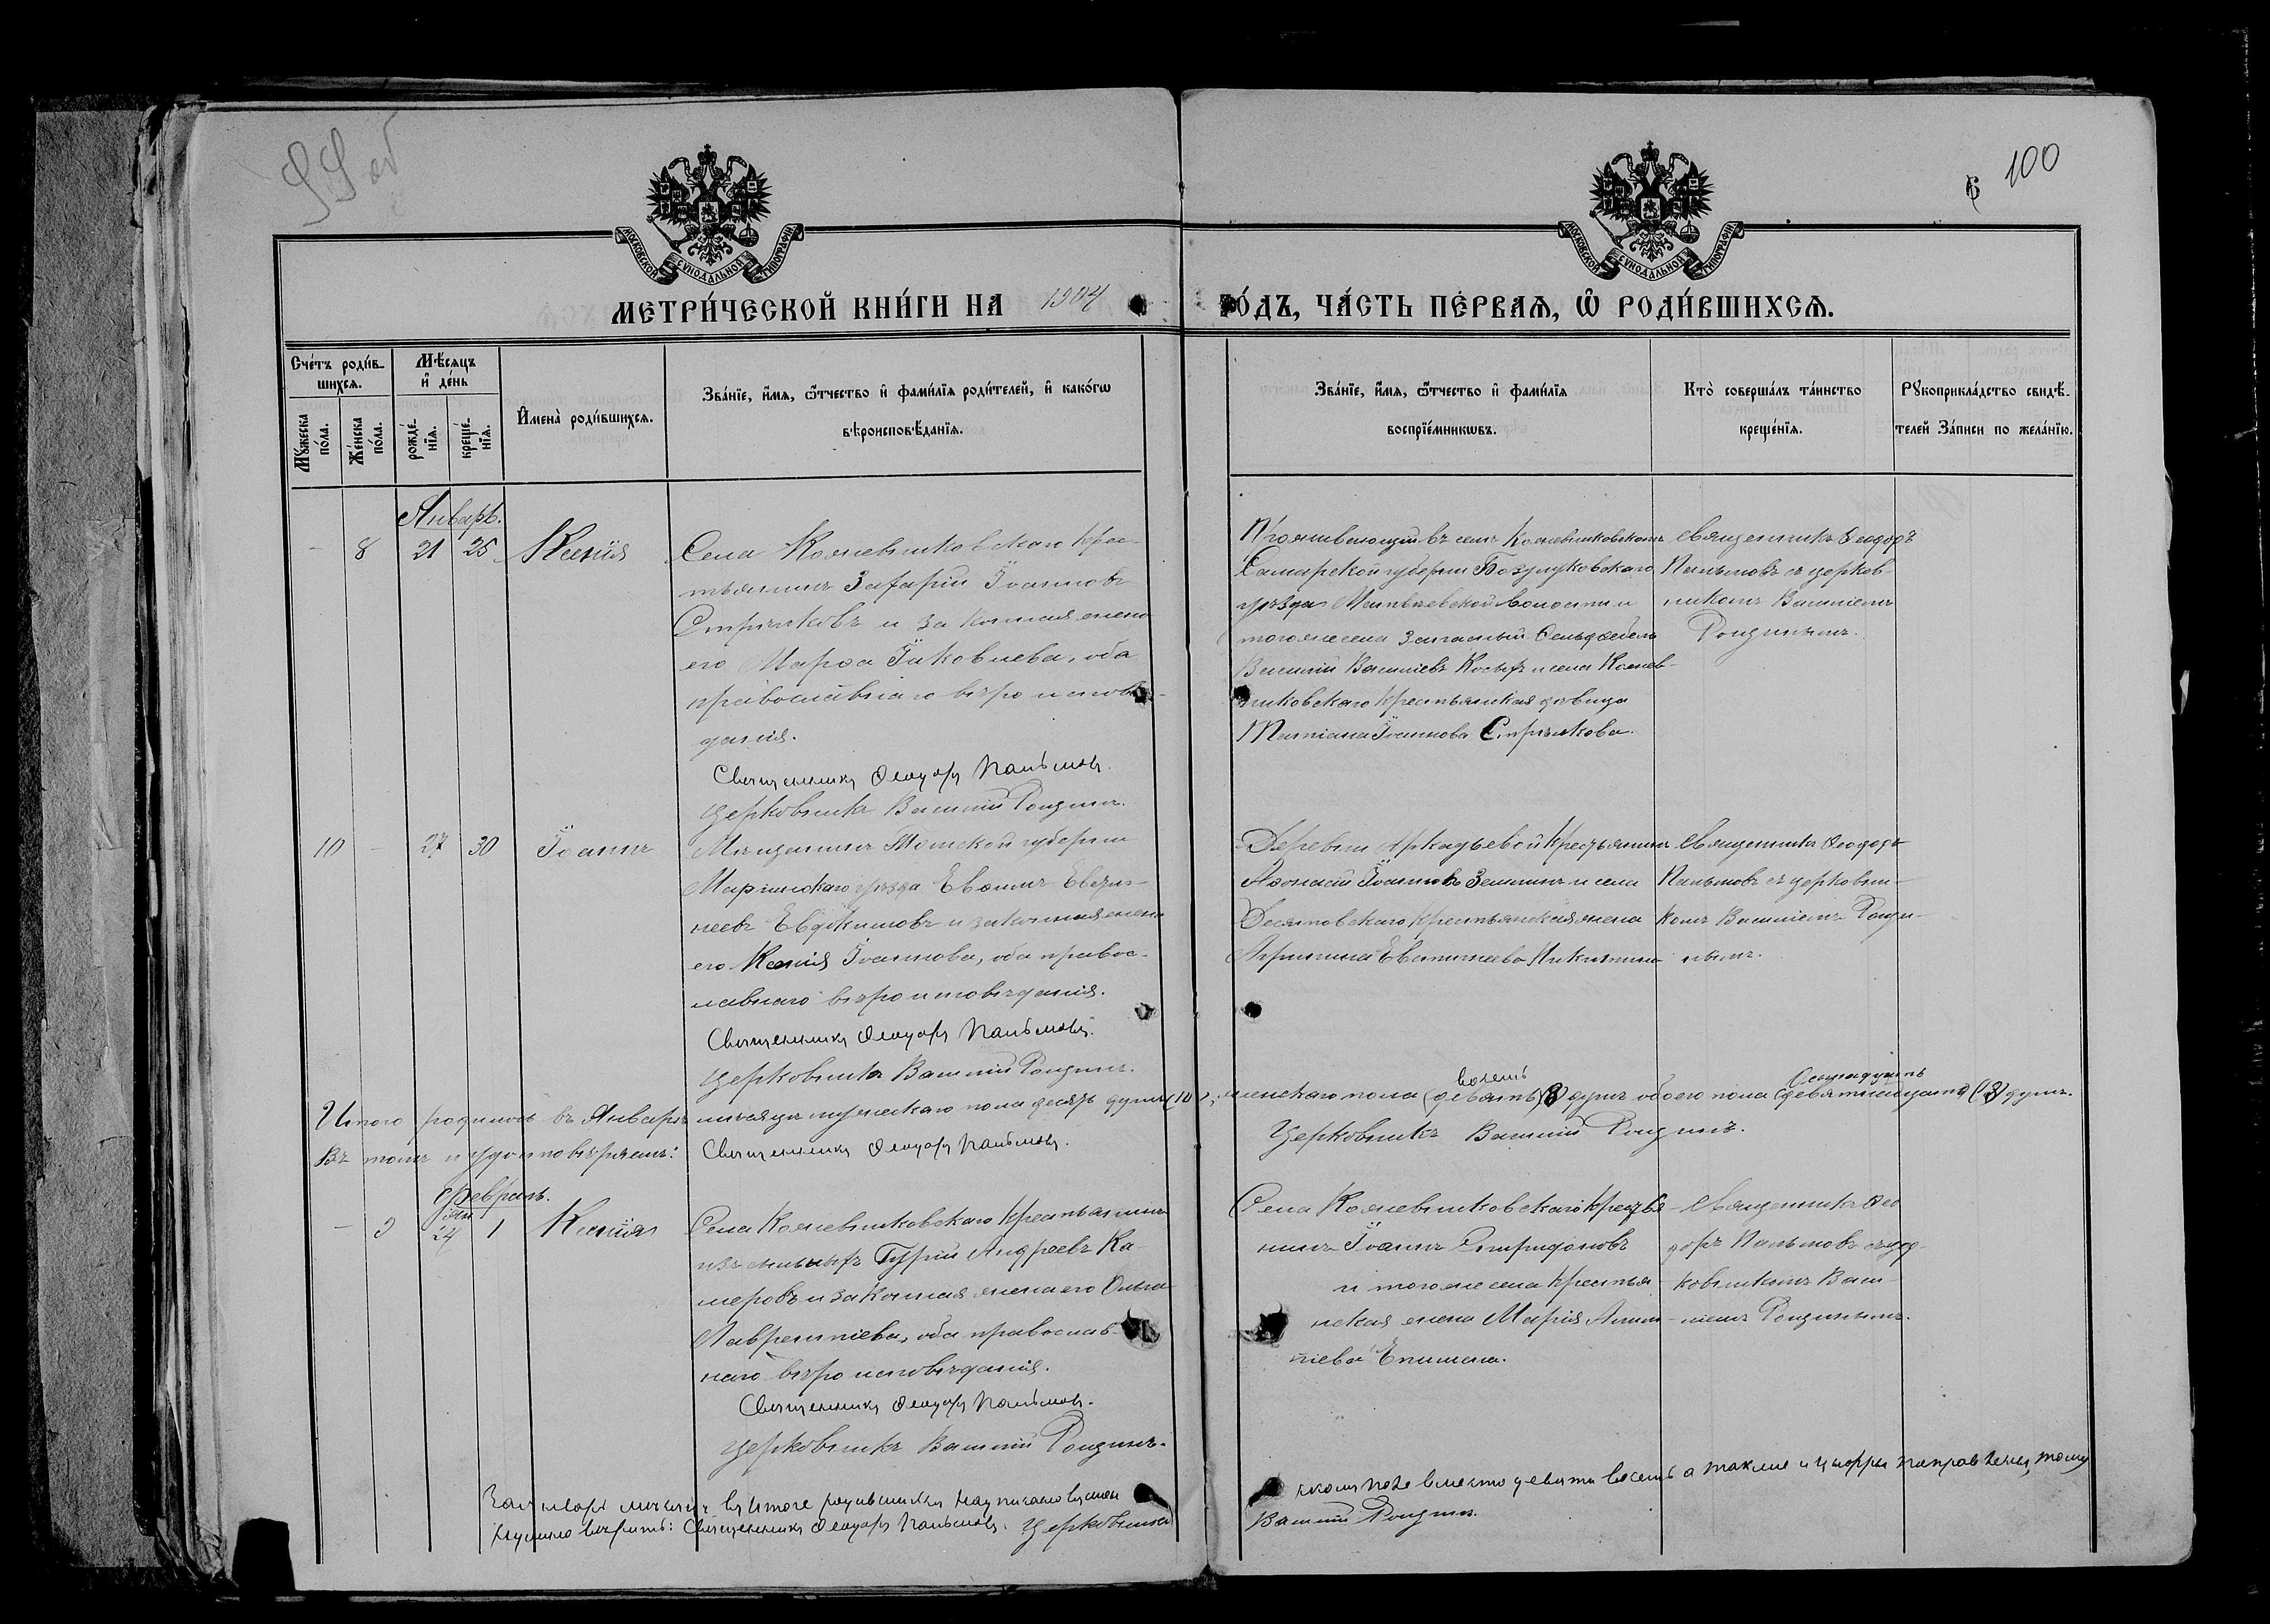 100
МОСКОВСКОЙ СѴНОДАЛЬНОЙ ТИПОГРАФІИ
МОСКОВСКОЙ СѴНОДАЛЬНОЙ ТИПОГРАФІИ
МЕТРИ́ЧЕСКОЙ КНИ́ГИ НА 1904 ГО́ДЪ, ЧА́СТЬ ПЕ́РВАѦ, Ѡ҆ РОДИ́ВШИХСѦ.
Сче́тъ роди́в-
шихсѧ.
Мꙋ́жеска
по́ла.
Же́нска
по́ла.
Мѣ́сѧцъ
и҆ де́нь
рожде́-
нїѧ.
креще́-
нїѧ.
И҆мена̀ роди́вшихсѧ.
Зва́нїе, и҆́мѧ, ѻ҆́тчество и҆ фами́лїѧ роди́телей, и҆ како́гѡ
вѣроисповѣ́данїѧ.
Зва́нїе, и҆́мѧ, ѻ҆́тчество и҆ фами́лїѧ
воспрїе́мникѡвъ.
Кто̀ соверша́лъ та́инство
креще́нїѧ.
Рꙋкоприкла́дство свидѣ́-
телей За́писи по жела́нїю.
Январь.
- 8 21 25 Ксенія
Села Кожевниковскаго крес-
тьянинъ Захарій Іоанновъ
Стрѣлковъ и законная жена
его Марѳа Іаковлева, оба
православнаго вѣроисповѣ-
данія.
Священникъ Ѳеодоръ Пальмовъ.
Церковникъ Василій Рощинъ.
Проживающій въ селѣ Кожевниковскомъ
Самарской губерніи Бозулуковскаго
уѣзда Матвѣевской волости и
тогоже села запасный Фельдфебель
Василій Васильевъ Косыхъ и села Кожев-
никовскаго крестьянская дѣвица
Татіана Іоаннова Стрѣлкова.
Священникъ Ѳеодоръ
Пальмовъ съ церков-
никомъ Василіемъ
Рощинымъ.
10 - 27 30 Іоаннъ
Мѣщанинъ Томской губерніи
Маріинскаго уѣзда Евѳимъ Евѳи-
меевъ Евдокимовъ и законная жена
его Ксенія Іоаннова, оба правос-
лавнаго вѣроисповѣданія.
Священникъ Ѳеодоръ Пальмовъ.
Церковникъ Василій Рощинъ.
Деревни Аркадьевой крестьянинъ
Аѳонасій Іоанновъ Зеининъ и села
Десятовскаго крестьянская жена
Агрипина Никитина
Священникъ Ѳеодоръ
Пальмовъ съ церковни-
комъ Василіемъ Рощи-
нымъ.
Итого родилось въ Январѣ мѣсяцѣ мужескаго пола десять душъ (10), женскаго пола (девять) восемь (8) душъ обоего пола (девятнадцать) осмнадцать (18) душъ.
Въ томъ и удостовѣряемъ: Священникъ Ѳеодоръ Пальмовъ. Церковникъ Василій Рощинъ.
Февраль.
- 9 янв 24 1 Ксенія
Села Кожевниковскаго крестьянинъ
Гурій Андреевъ Ка-
меровъ и законная жена его Ольга
Лаврентіева, оба православ-
наго вѣроисповѣданія.
Священникъ Ѳеодоръ Пальмовъ.
Церковникъ Василій Рощинъ.
Села Кожевниковскаго крестья-
нинъ Іоаннъ Спиридоновъ
и тогоже села крестья-
нская жена Марія
Священникъ Ѳео-
доръ Пальмовъ съ цер-
ковникомъ Васи-
ліемъ Рощинымъ.
За январь мѣсяцъ въ итогѣ родившихся написано въ жен
скомъ полѣ вмѣсто девяти восемь а также и цифры поправлены, тому
и должно вѣрить: Священникъ Ѳеодоръ Пальмовъ. Церковникъ
Василій Рощинъ.